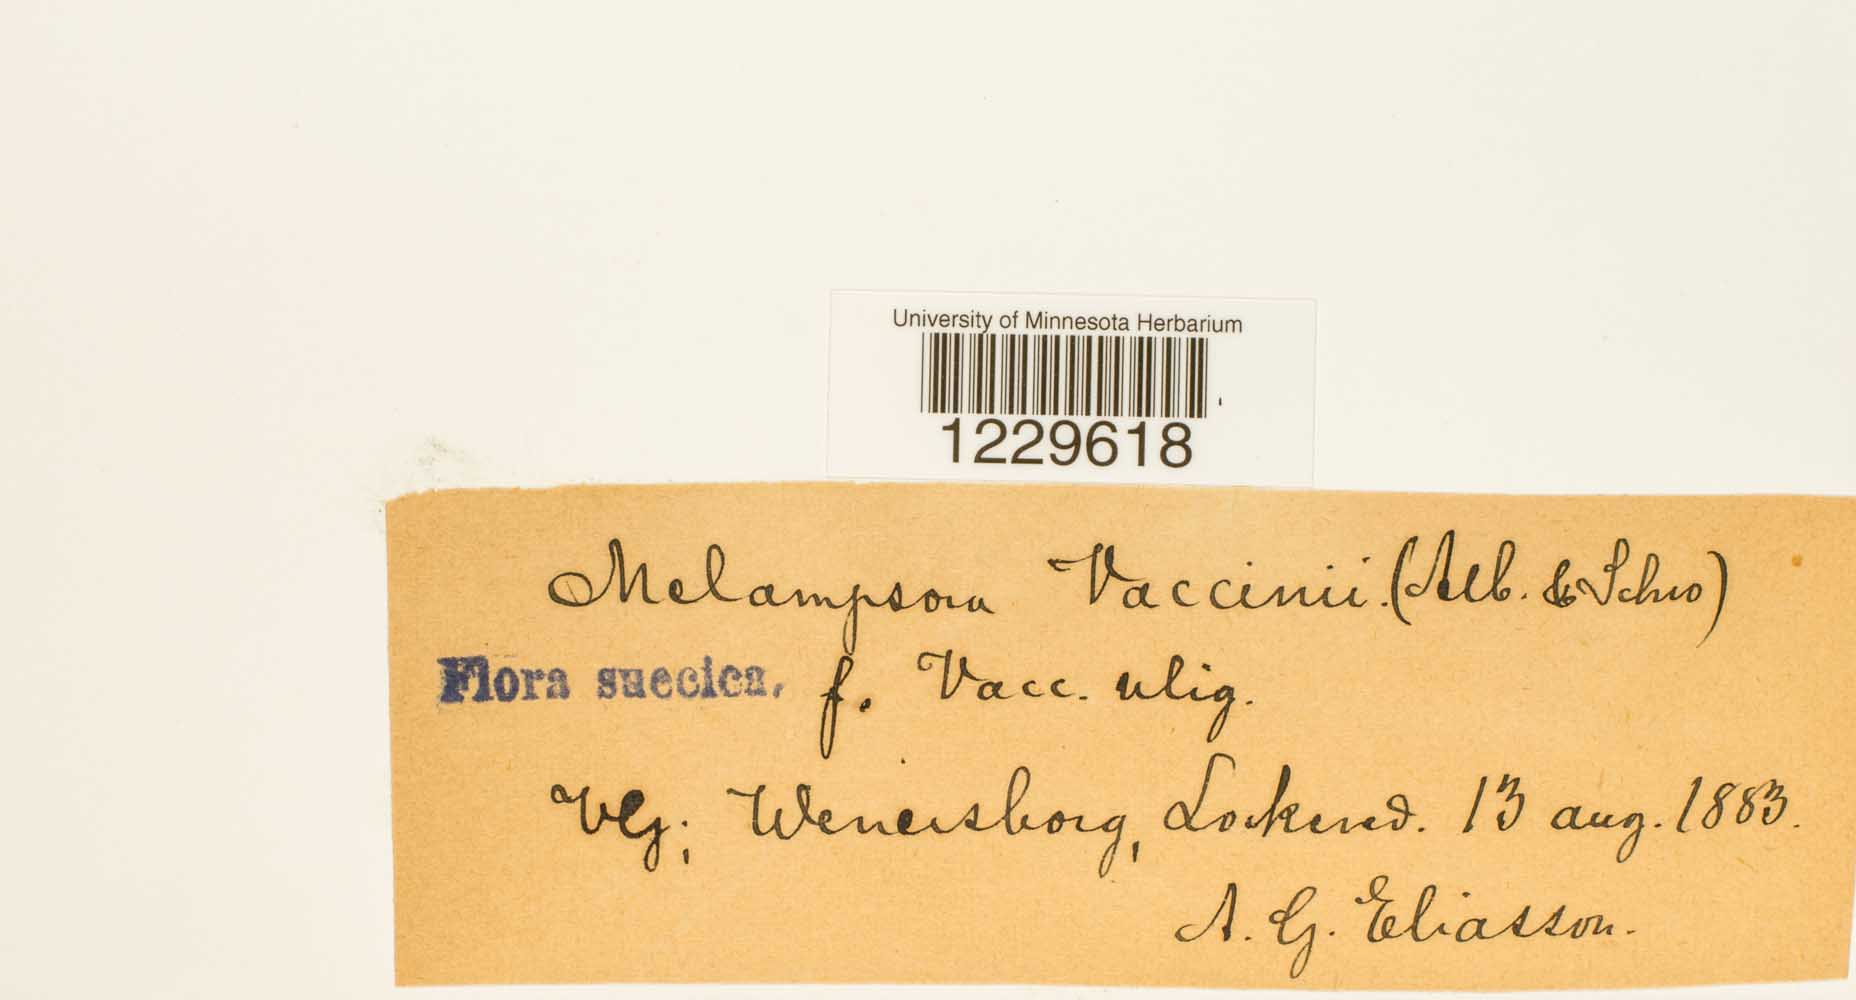 University of Minnesota Herbarium
1229618
Melampsora Vaccinii. (Alb. & Schw)
Flora suecica. f. Vacc. ulig.
Vg; Wenersborg, Lockered. 13 aug. 1883.
A. G. Eliasson.